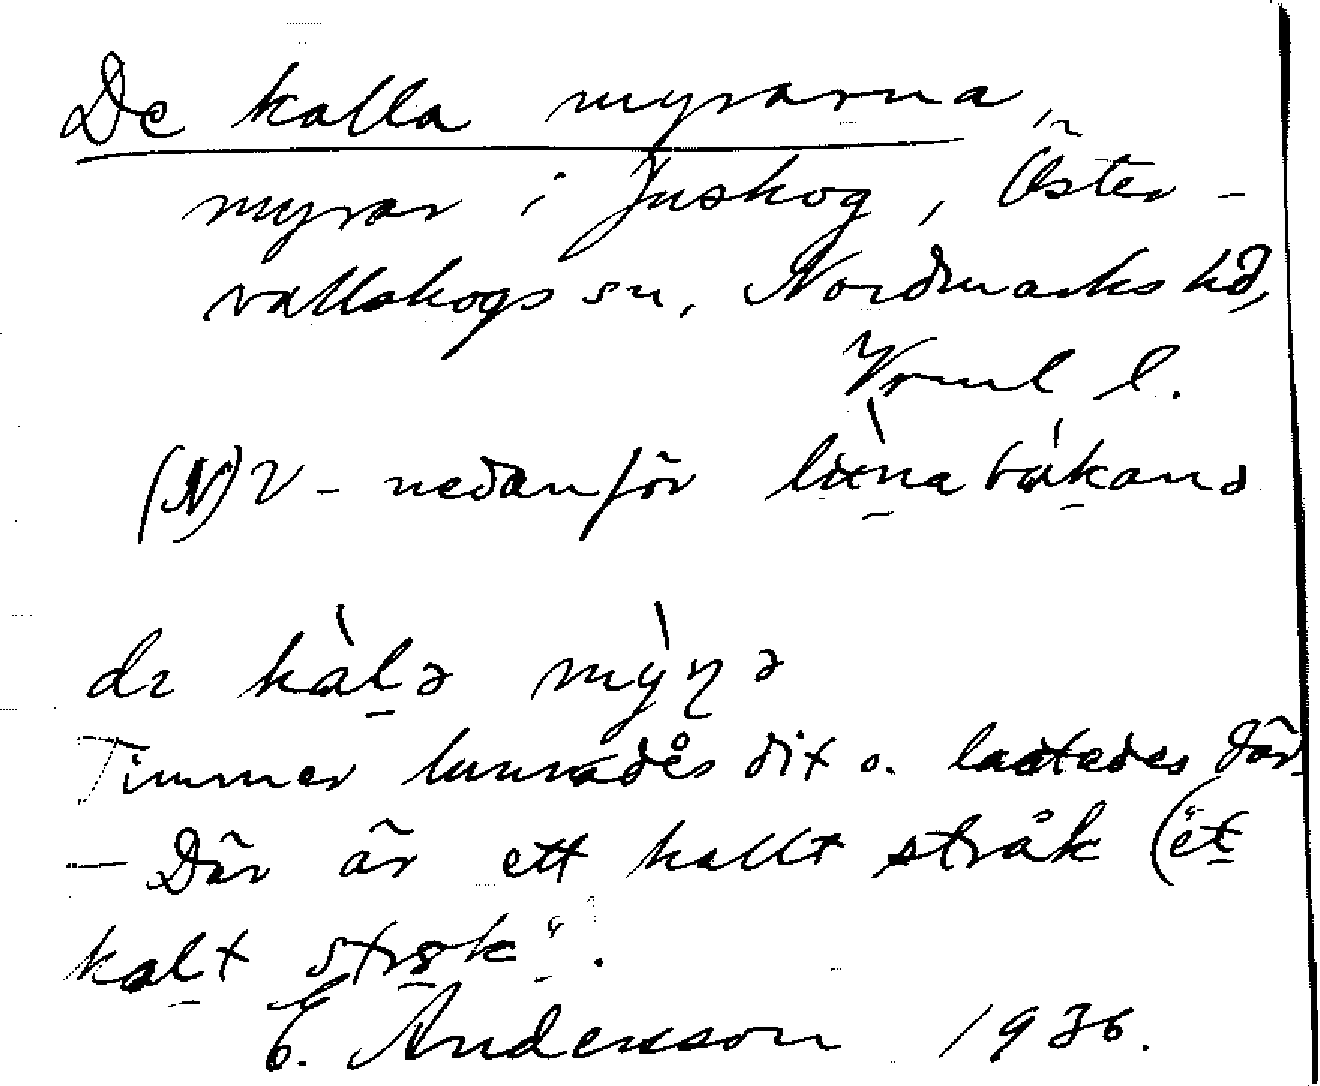 De kalla myrarna,
myrar i Juskog, Öster-
vallskogs sn, Nordmarks hd,
Vrml l.
(N)V - nedanför
de kàlə mỳṇə
Timmer lunnades dit o. lastades där
— Där är ett kallt stråk ("et
kalt stråk".
E. Andersson 1936.